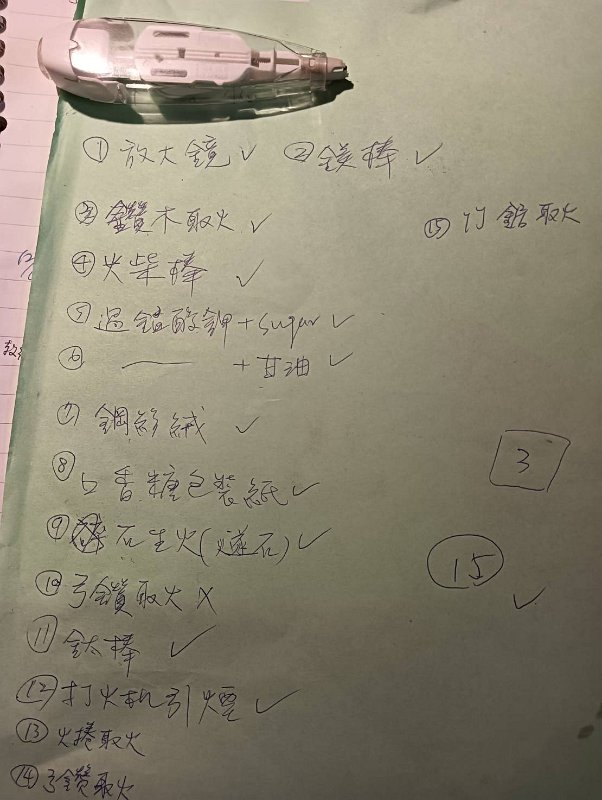 ① 放大鏡 ✓ ② 鎂棒 ✓
③ 鑽木取火 ✓
⑮ 竹鋸取火
④ 火柴棒 ✓
⑤ 過錳酸鉀 + sugar ✓
⑥ —— + 甘油 ✓
⑦ 鋼絲絨 ✓
⑧ 口香糖包裝紙 ✓
3
⑨ 石生火(燧石) ✓
15 ✓
⑩ 弓鑽取火 X
⑪ 鈦棒 ✓
⑫ 打火机引煙 ✓
⑬ 火捲取火
⑭ 弓鑽取火